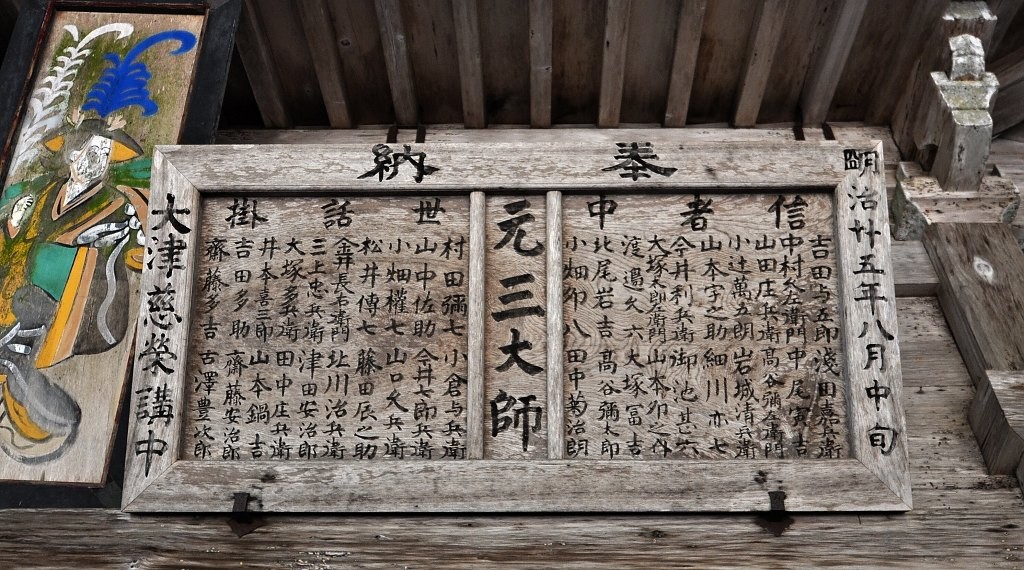 奉納
明治廿五年八月中旬
信者中
吉田与五郎 淺田嘉兵衛
中村久左衛門 中尾寅吉
山田庄兵衛 髙谷彌左衛門
小辻萬五朗 岩城清兵衛
山本宇之助 細川亦七
今井利兵衛 御池甚六
大塚太郎左衛門 山本卯之丹
渡邉久六 大塚冨吉
北尾岩吉 髙谷彌太郎
小畑卯八 田中菊治朗
元三大師
世話掛
村田彌七 小倉与兵衛
山中佐助 今井七郎兵衛
小畑權七 山口久兵衛
松井傳七 藤田辰之助
金井長右衛門 北川治兵衛
三上忠兵衛 津田安治郎
大塚多兵衛 田中庄兵衛
井本喜三郎 山本鍋吉
吉田多助 齋藤安治郎
齋藤多吉 古澤豊次郎
大津慈榮講中